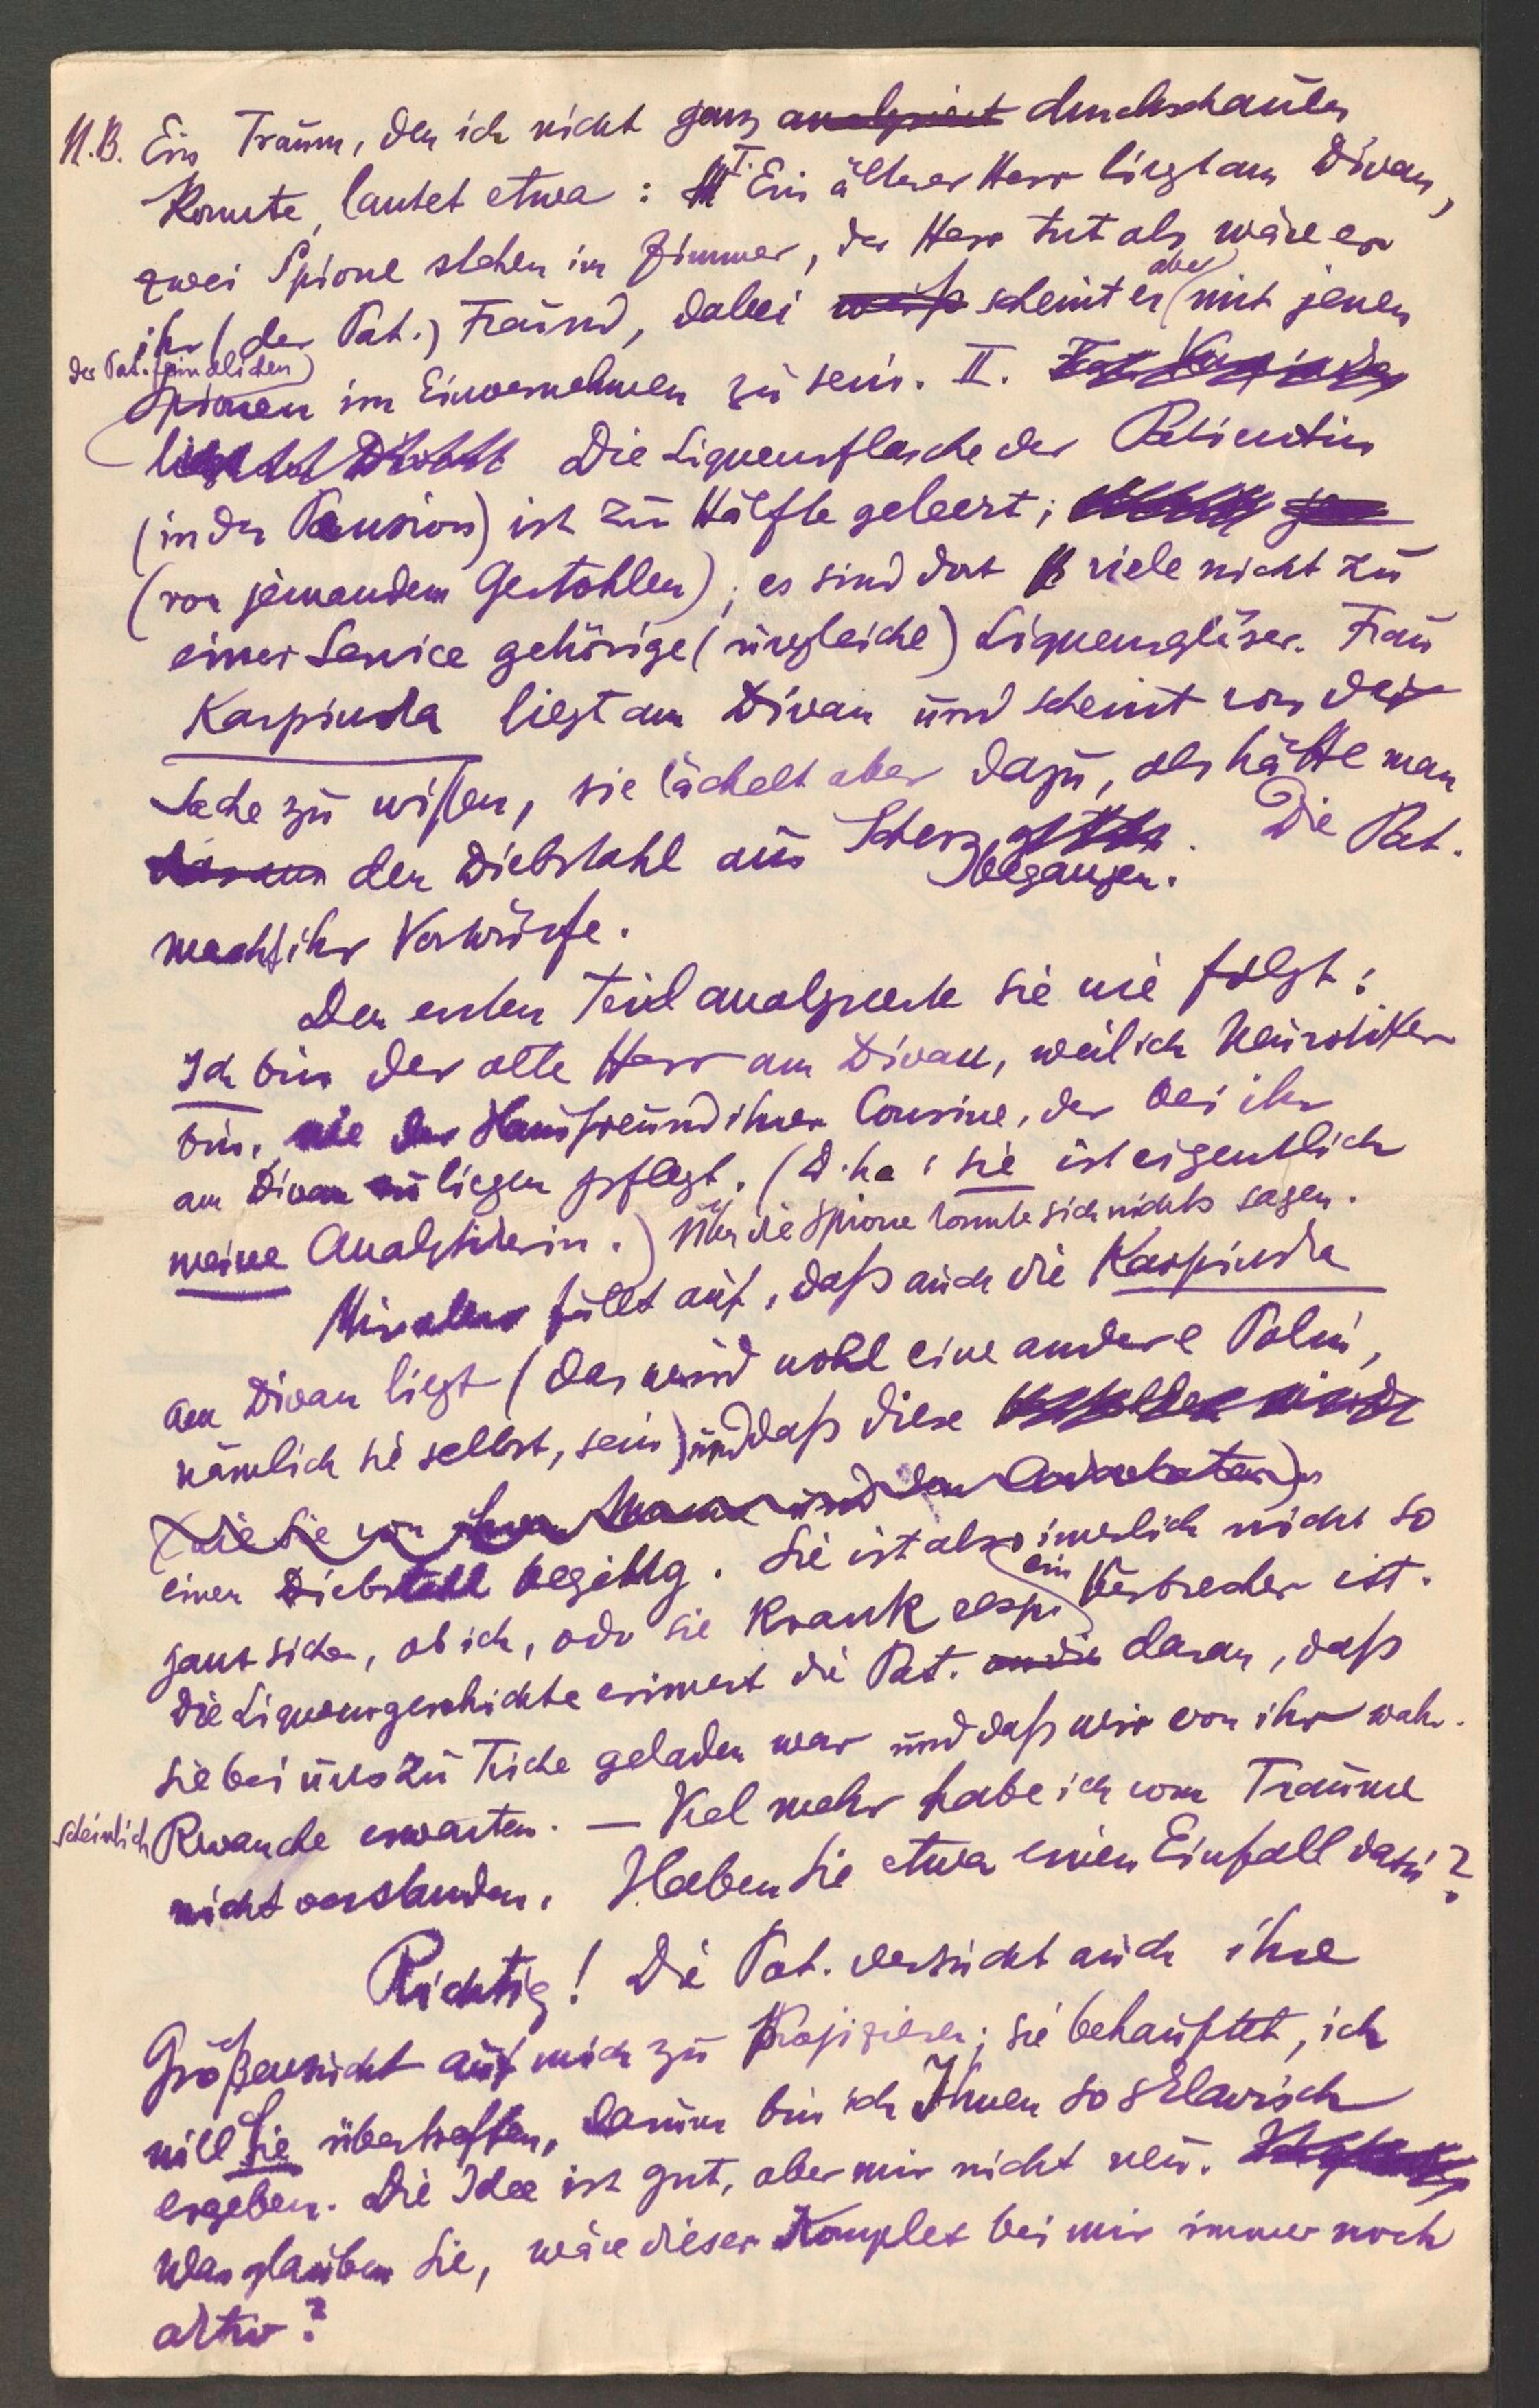 N.B. Ein Traum, den ich nicht ganz analysiert durchschauen
konnte, lautet etwa: I. Ein älterer Herr liegt am Divan,
zwei Spione stehen im Zimmer, der Herr tut als wäre er
ihr (der Pat.) Freund, dabei weiß scheint er aber mit jenen
der Pat. feindlichen)
Spionen im Einvernehmen zu sein. II.
Die Liqueurflasche der Patientin
(in der Pension) ist zur Hälfte geleert;
(von jemandem Gestohlen); es sind dort viele nicht zu
einer Service gehörige (ungleiche) Liqueurgläser. Frau
Karpinska liegt am Divan und scheint von der
Sache zu wißen, sie lächelt aber dazu, als hätte man
den Diebstahl aus Scherz begangen. Die Pat.
macht ihr Vorwürfe.
Den ersten Teil analysierte sie wie folgt:
Ich bin der alte Herr am Divan, weil ich Neurotiker
bin, wie der Hausfreund ihrer Cousine, der bei ihr
am Divan zu liegen pflegt. (D.h.: sie ist eigentlich
meine Analytikerin.) Über die Spione konnte sie nichts sagen.
Mir fällt auf, daß auch die Karpinska
am Divan liegt (das wird wohl eine andere Polin,
nämlich sie selbst, sein) und daß diese
(wie sie von ihrem Manne und dem Advokaten)
einen Diebstahl begieng. Sie ist also innerlich nicht so
ganz sicher, ob ich, oder sie krank resp. ein Verbrecher ist.
Die Liqueurgeschichte erinnert die Pat. an die daran, daß
sie bei uns zu Tische geladen war und daß wir von ihr wahr-
scheinlich Revanche erwarten. — Viel mehr habe ich vom Traume
nicht verstanden. Haben Sie etwa einen Einfall dazu?
Richtig! Die Pat. versucht auch ihre
Größensucht auf mich zu Projizieren; sie behauptet, ich
will Sie übertreffen, darum bin ich Ihnen so sklavisch
ergeben. Die Idee ist gut, aber mir nicht neu.
Was glauben Sie, wäre dieser Komplex bei mir immer noch
aktiv?